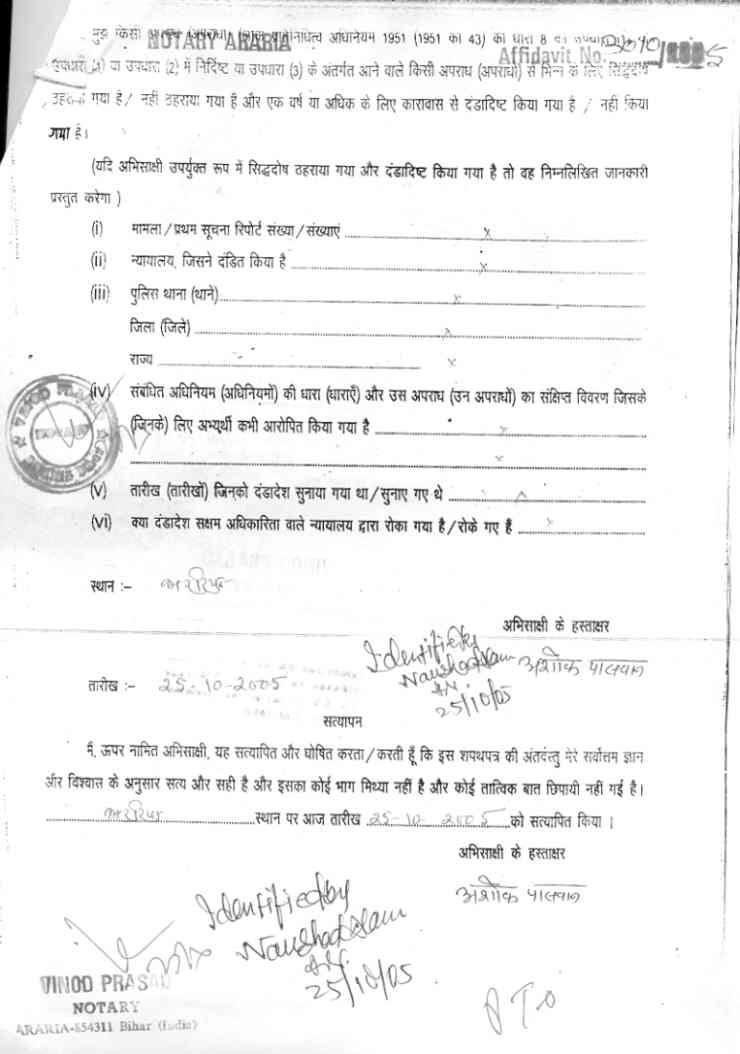 NOTARY ARARIA
मुझे किसी लोक प्रतिनिधित्व अधिनियम 1951 (1951 का 43) की धारा 8 की
Affidavit No.
उपधारा (1) या उपधारा (2) में निर्दिष्ट या उपधारा (3) के अंतर्गत आने वाले किसी अपराध (अपराधों) से भिन्न के लिए सिद्धदोष
ठहराया गया है / नहीं ठहराया गया है और एक वर्ष या अधिक के लिए कारावास से दंडादिष्ट किया गया है / नहीं किया
गया है।
(यदि अभिसाक्षी उपर्युक्त रूप में सिद्धदोष ठहराया गया और दंडादिष्ट किया गया है तो वह निम्नलिखित जानकारी
प्रस्तुत करेगा )
(i) मामला / प्रथम सूचना रिपोर्ट संख्या / संख्याएं x
(ii) न्यायालय, जिसने दंडित किया है x
(iii) पुलिस थाना (थाने) x
जिला (जिले) x
राज्य x
(iv) संबंधित अधिनियम (अधिनियमों) की धारा (धाराएँ) और उस अपराध (उन अपराधों) का संक्षिप्त विवरण जिसके
(जिनके) लिए अभ्यर्थी कभी आरोपित किया गया है x
x
(v) तारीख (तारीखों) जिनको दंडादेश सुनाया गया था / सुनाए गए थे x
(vi) क्या दंडादेश सक्षम अधिकारिता वाले न्यायालय द्वारा रोका गया है / रोके गए हैं x
स्थान :– अररिया
अभिसाक्षी के हस्ताक्षर
Identified by
Naushad Alam
25/10/05
अशोक पासवान
तारीख :– 25-10-2005
सत्यापन
मैं, ऊपर नामित अभिसाक्षी, यह सत्यापित और घोषित करता / करती हूँ कि इस शपथपत्र की अंतर्वस्तु मेरे सर्वोत्तम ज्ञान
और विश्वास के अनुसार सत्य और सही है और इसका कोई भाग मिथ्या नहीं है और कोई तात्विक बात छिपायी नहीं गई है।
अररिया स्थान पर आज तारीख 25-10-2005 को सत्यापित किया ।
अभिसाक्षी के हस्ताक्षर
अशोक पासवान
Identified by
Naushad Alam
25/10/05
VINOD PRASAD
NOTARY
ARARIA-854311 Bihar (India)
PTO